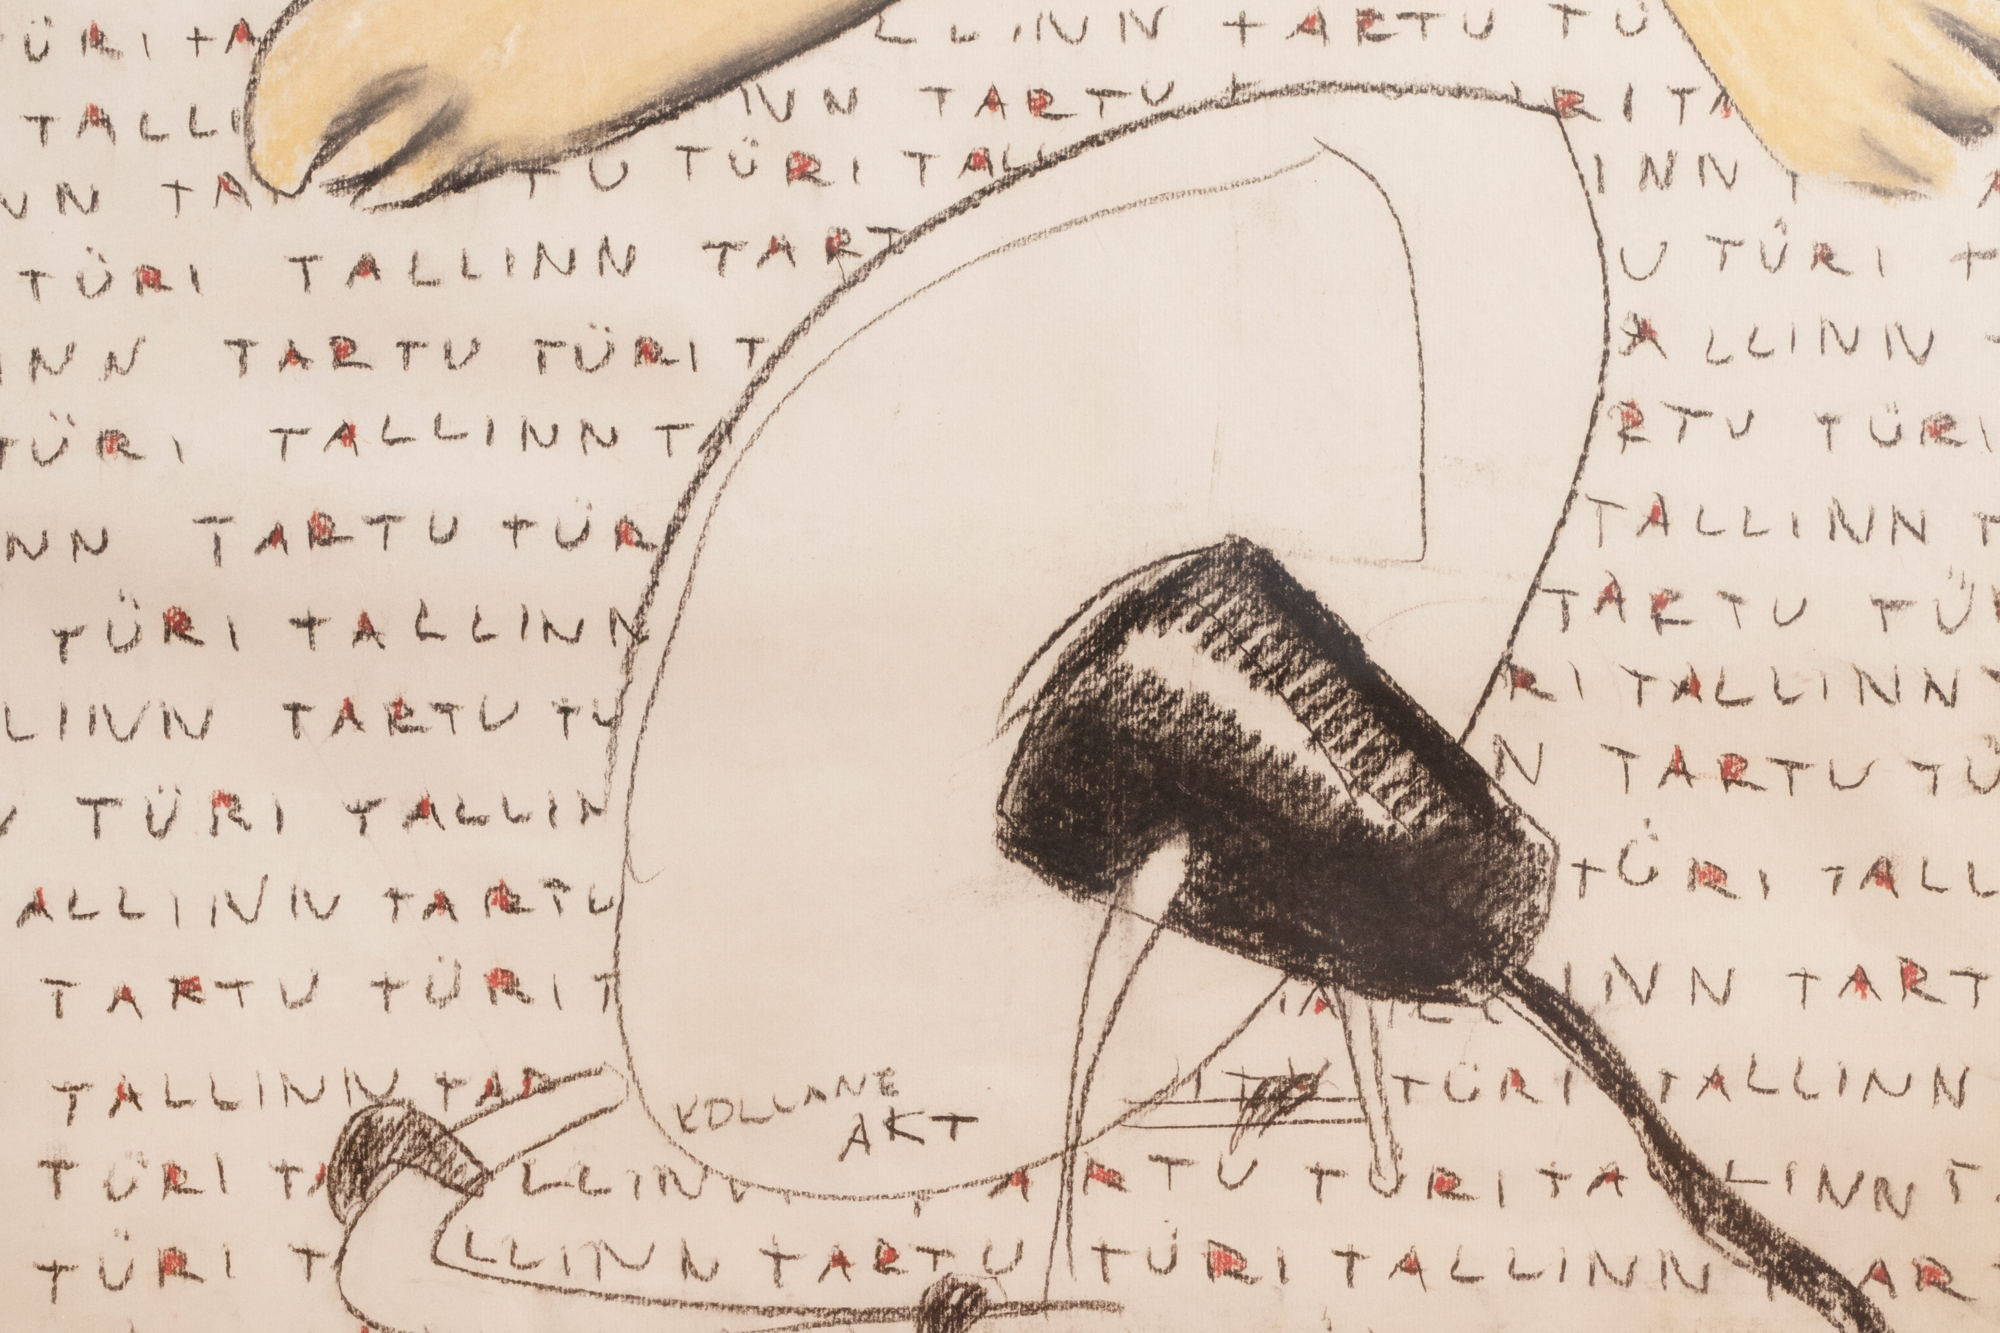 ÜRI TA LLINN TARTU TÜ
TALLI INN TARTU RI TA
NN TAR TU TÜRI TALL INN T
TÜRI TALLINN TART U TÜRI T
INN TARTU TÜRI T ALLINN T
TÜRI TALLINN T RTU TÜRI
NN TARTU TÜR TALLINN T
TÜRI TALLINN TARTU TÜR
LLINN TARTU TÜ RI TALLINN T
U TÜRI TALLIN N TARTU TÜ
ALLINN TARTU TÜRI TALL
TARTU TÜRI T TALL INN TART
TALLINN TAR TÜRI TALLINN
KOLLANE
AKT
TÜRI TA LLINN ARTU TÜRI TA LINN T
TÜRI T LLINN TARTU TÜRI TALLINN TAR